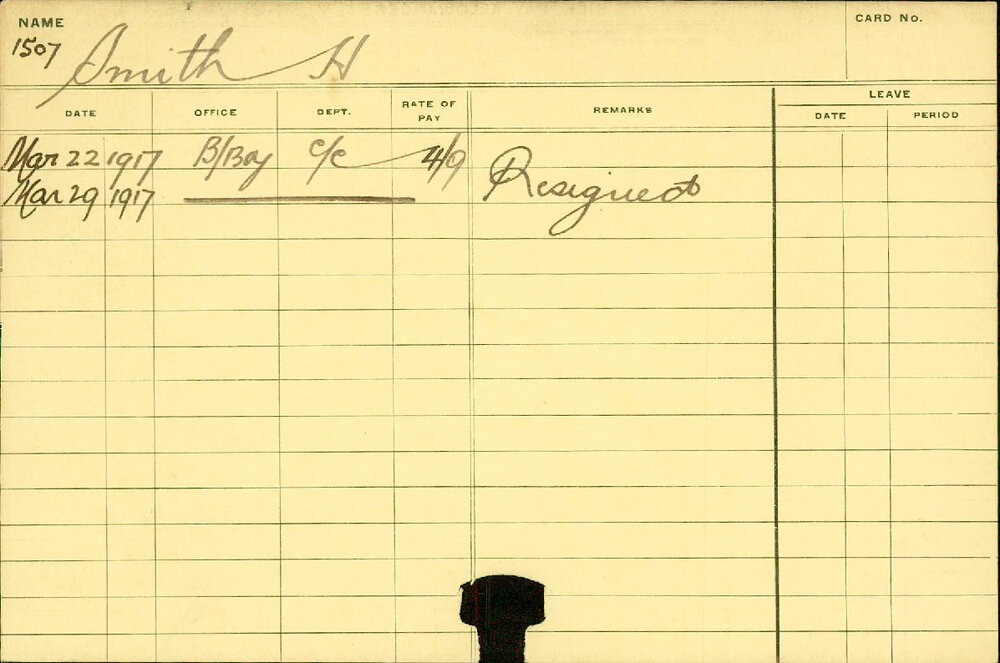 NAME
CARD No.
1507 Smith H
DATE OFFICE DEPT. RATE OF PAY REMARKS LEAVE
DATE PERIOD
Mar 22 1917 B/Boy C/C 4/9
Mar 29 1917 Resigned